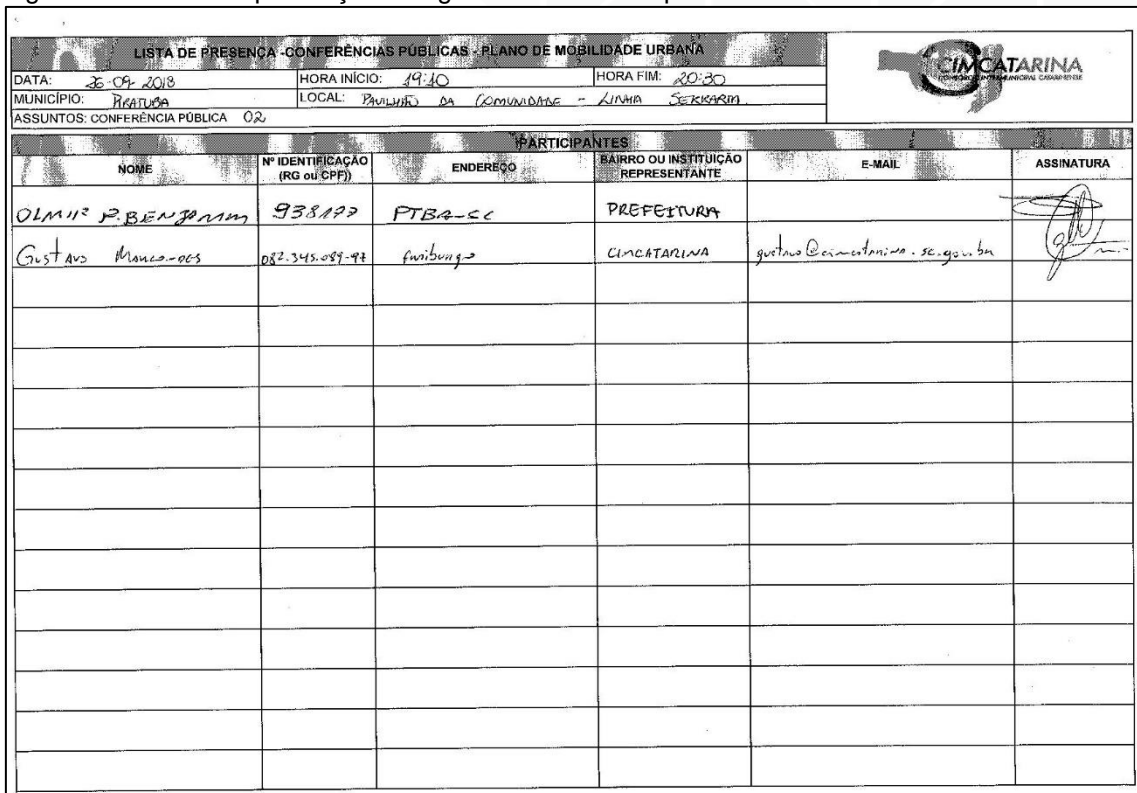 LISTA DE PRESENÇA -CONFERÊNCIAS PÚBLICAS - PLANO DE MOBILIDADE URBANA
CIMCATARINA
DATA: 26-09-2018 HORA INÍCIO: 19:10 HORA FIM: 20:30
MUNICÍPIO: PIRATUBA LOCAL: PAVILHÃO DA COMUNIDADE - LINHA
ASSUNTOS: CONFERÊNCIA PÚBLICA 02
PARTICIPANTES
NOME Nº IDENTIFICAÇÃO (RG ou CPF)) ENDEREÇO BAIRRO OU INSTITUIÇÃO REPRESENTANTE E-MAIL ASSINATURA
P. BENJAMIN PTBA-SC PREFEITURA
GUSTAVO CIMCATARINA